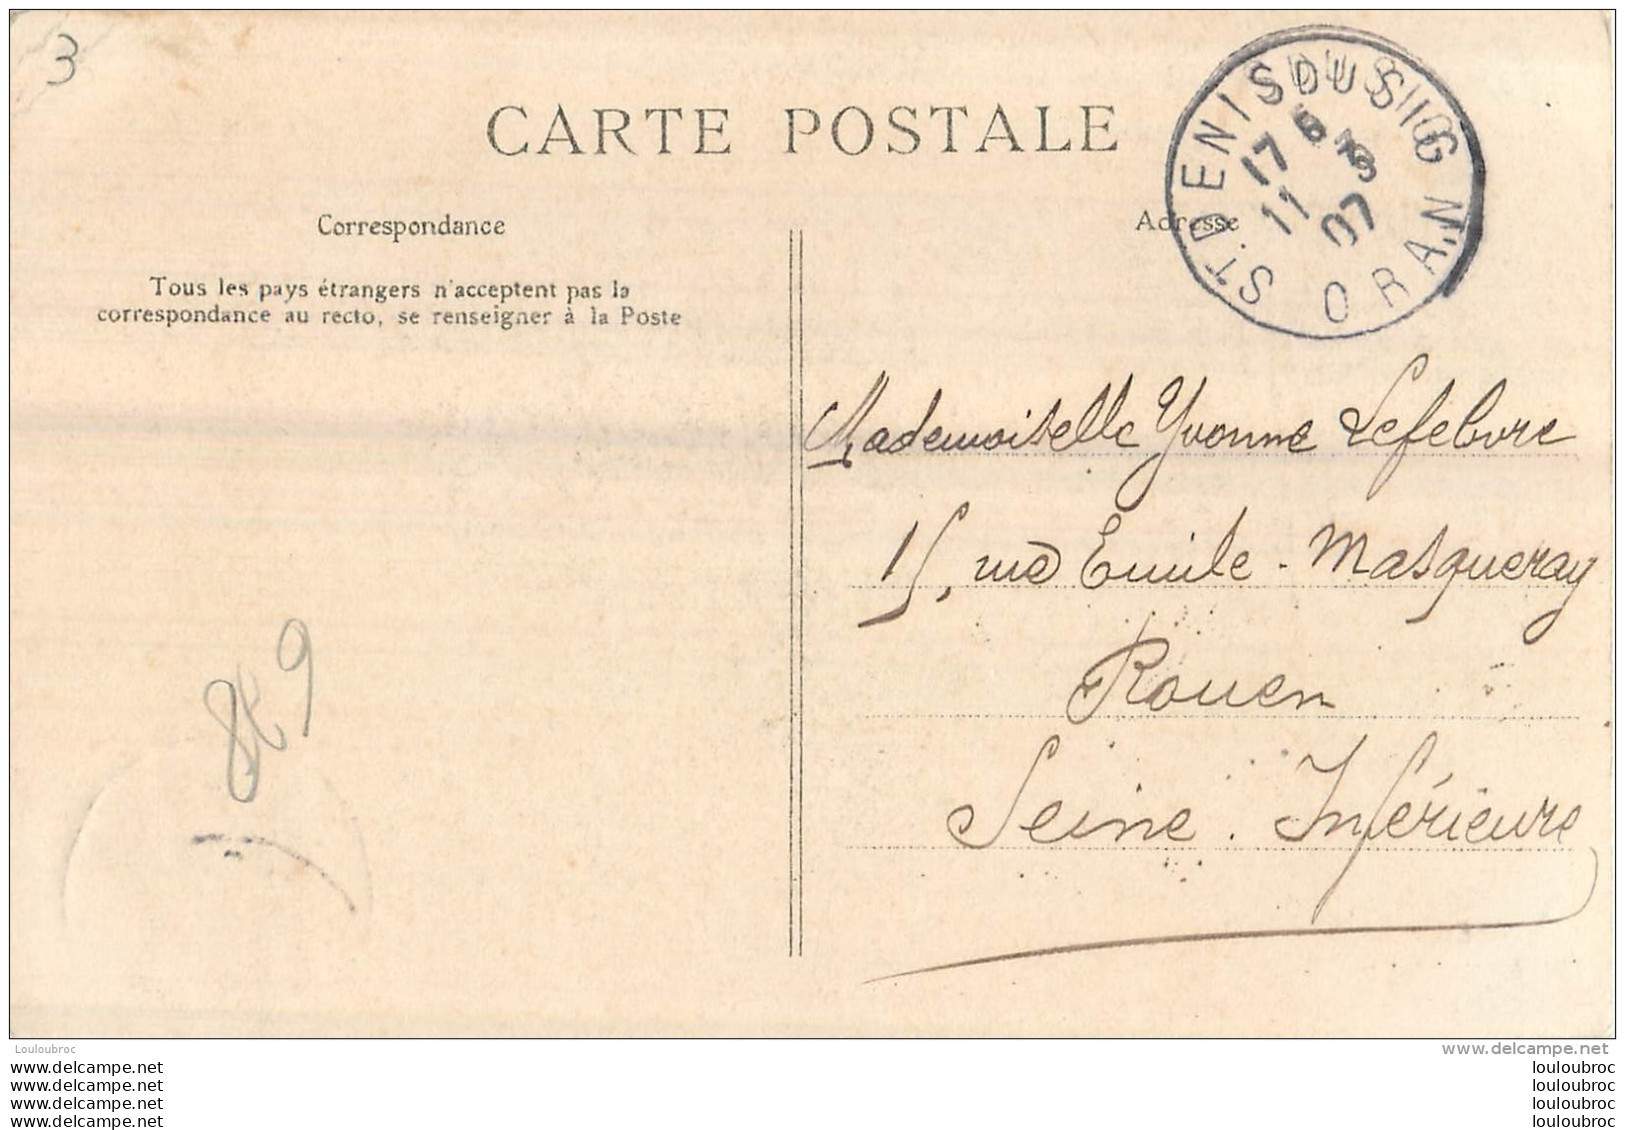 3
CARTE POSTALE
ST DENIS DU SIG
ORAN
17
11
07
Correspondance
Adresse
Tous les pays étrangers n'acceptent pas la
correspondance au recto, se renseigner à la Poste
Mademoiselle Yvonne Lefebvre
15, rue Emile-Masqueray
Rouen
Seine. Inférieure
Louloubroc
www.delcampe.net
www.delcampe.net
www.delcampe.net
www.delcampe.net
www.delcampe.net
louloubroc
louloubroc
louloubroc
louloubroc